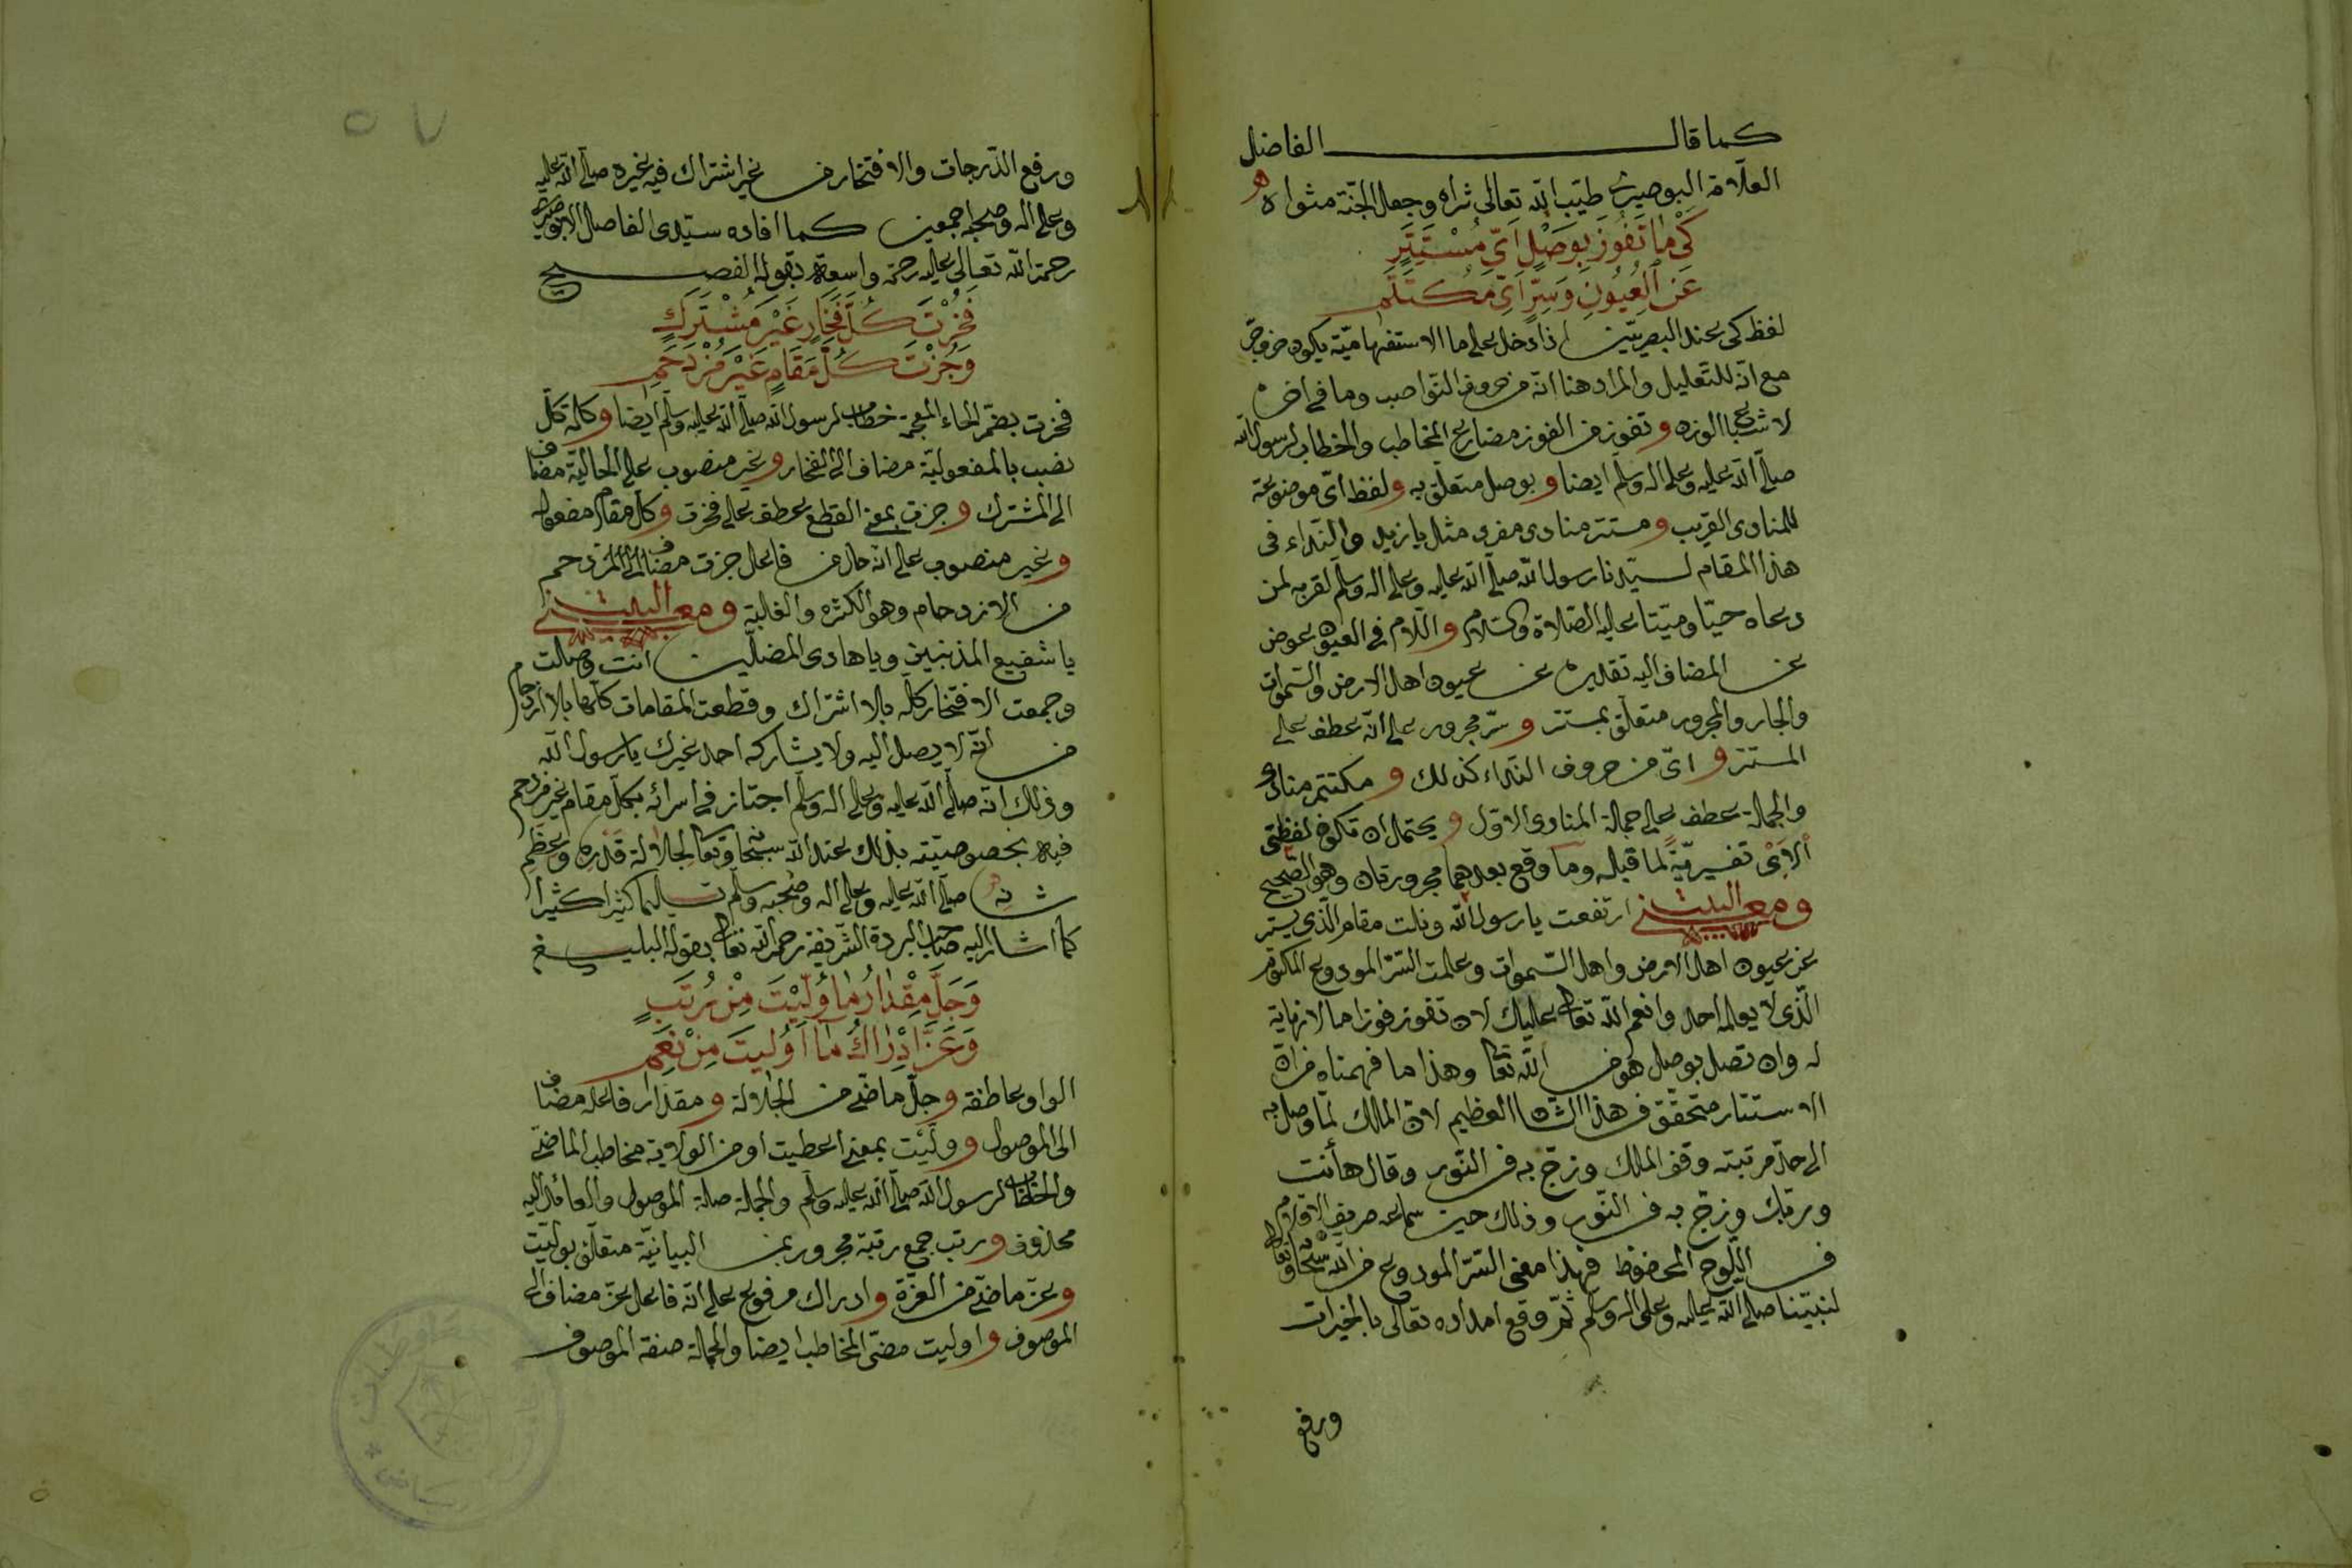 كما قال الفاضل
العلامة البوصيري طيب الله تعالى ثراه وجعل الجنة مثواه
كَيْ مَا تَفُوزَ بِوَصْلٍ اَيِّ مُسْتَتِرٍ
عَنِ الْعُيُونِ وَسِرٍّ اَيِّ مُكْتَتَمِ
لفظ كي عند البصريين اذا دخل على ما الاستفهامية يكون حرف جر
مع انه للتعليل والمراد هنا انه من حروف النواصب وما في اخره
لاشباع الوزن وتفوز من الفوز مضارع المخاطب والخطاب لرسول الله
صلى الله عليه وعلى اله وسلم ايضا وبوصل متعلق به ولفظ اي موضوعة
للمنادى القريب ومستتر منادى مفرد مثل يا زيد والنداء في
هذا المقام لسيدنا رسول الله صلى الله عليه وعلى اله وسلم لقربه لمن
دعاه حيا وميتا عليه الصلاة والسلام واللام في العيون عوض
عن المضاف اليه تقديره عن عيون اهل الارض والسموات
والجار والمجرور متعلق بمستتر وسر مجرور على انه عطف على
المستتر واي من حروف النداء كذلك ومكتتم منادى
والجملة عطف على جملة المنادى الاول ويحتمل ان تكون لفظتي
الاَيْ تفسيريةً لما قبله وما وقع بعدهما مجرورتان وهو الصحيح
ومعنى البيت ارتفعت يا رسول الله ونلت مقام الذي يستر
عن عيون اهل الارض واهل السموات وعلمت السر المودوع المكتوم
الذي لا يعلمه احد وانعم الله تعالى عليك لان تفوز فوزا ما لا نهاية
له وان تصل بوصل هو من الله تعالى وهذا ما فهمناه من ان
الاستتار متحقق في هذا الشان العظيم لان الملك لما وصل به
الى حد مرتبته وقف الملك وزج به في النور وقال ها أنت
وربك وزج به في النور وذلك حين سماعه صريف الاقلام
في اللوح المحفوظ فهذا معنى السر المودوع من الله سبحانه وتعالى
لنبينا صلى الله عليه وعلى اله وسلم ثم وقع امداده تعالى بالخيرات
ورفع
٥٧
ورفع الدرجات والافتخار من غير اشتراك فيه غيره صلى الله عليه
وعلى اله وصحبه اجمعين كما افاده سيدى الفاضل البوصيري
رحمة الله تعالى عليه رحمة واسعة بقوله الفصيح
فَحُزْتَ كُلَّ فَخَارٍ غَيْرَ مُشْتَرَكٍ
وَجُزْتَ كُلَّ مَقَامٍ غَيْرَ مُزْدَحَمِ
فحزت بضم الحاء المعجمة خطاب لرسول الله صلى الله عليه وسلم ايضا وكلمة كل
نصب بالمفعولية مضاف الى الفخار وغير منصوب على الحالية مضاف
الى المشترك وجزت بمعنى القطع عطف على فحزت وكل مقام مفعوله
وغير منصوب على انه حال من فاعل جزت مضاف الى المزدحم
من الازدحام وهو الكثرة والغلبة ومعنى البيت
يا شفيع المذنبين ويا هادى المضلين انت وصلت
وجمعت الافتخار كله بلا اشتراك وقطعت المقامات كلها بلا ازدحام
من انه لا يصل اليه ولا يشاركه احد غيرك يا رسول الله
وذلك انه صلى الله عليه وعلى اله وسلم اجتاز في اسرائه بكل مقام غير مزدحم
فيه بخصوصيته بذلك عند الله سبحانه وتعالى لجلالة قَدْرِه وعِظَمِ
شانه صلى الله عليه وعلى اله وصحبه وسلم تسليما كثيرا كثيرا
كما اشار اليه صاحب البردة الشريفة رحمه الله تعالى بقوله البليغ
وَجَلَّ مِقْدَارُ مَا وُلِّيْتَ مِنْ رُتَبٍ
وَعَزَّ اِدْرَاكُ مَا اُولِيتَ مِنْ نِعَمِ
الواو عاطفة وجل ماضي من الجلالة ومقدار فاعله مضاف
الى الموصول ووليت بمعنى اعطيت او من الولاية مخاطب الماضي
والخطاب لرسول الله صلى الله عليه وسلم والجملة صلة الموصول والعائد اليه
محذوف ورتب جمع رتبة مجرور بمن البيانية متعلق بوليت
وعز ماضي من العزة وادراك مرفوع على انه فاعل عز مضاف الى
الموصوف واوليت مضي المخاطب ايضا والجملة صفة الموصوف